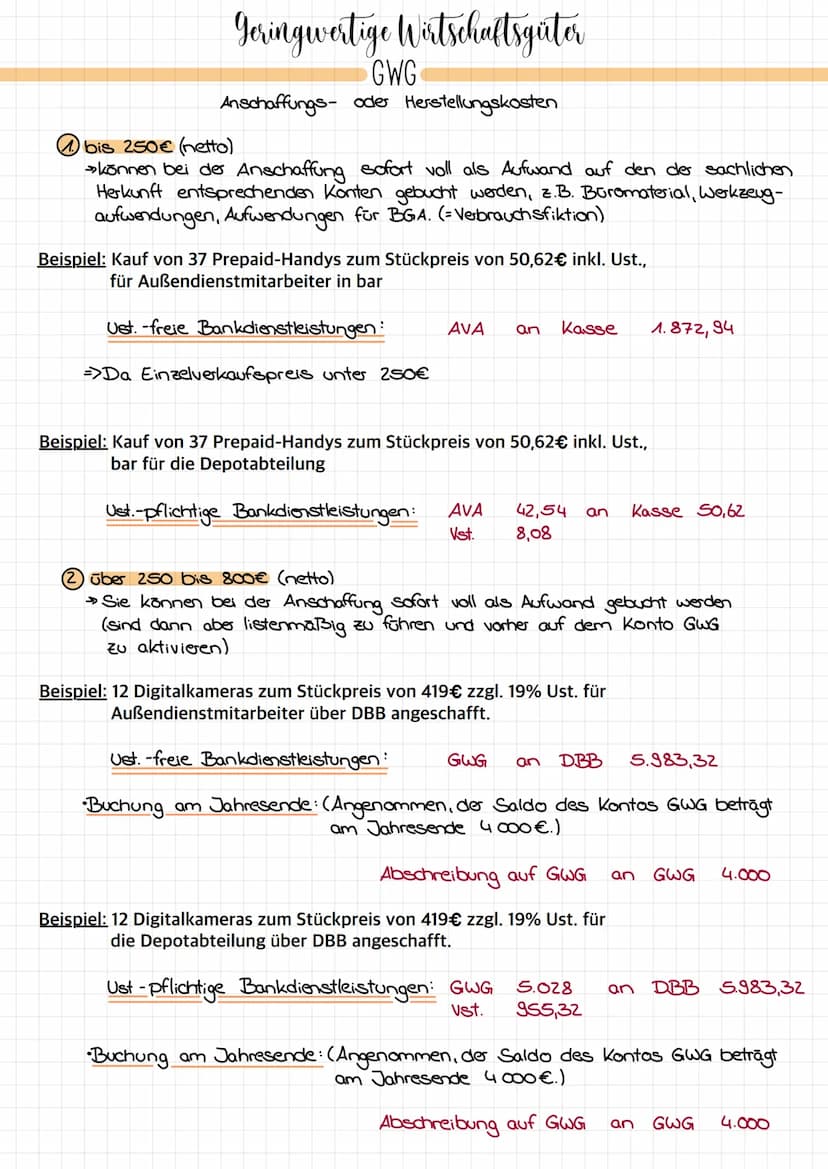 Geringwertige Wirtschaftsgüter
GWG
Anschaffungs- oder Herstellungskosten
1. bis 250€ (netto)
→können bei der Anschaffung sofort voll als Aufwand auf den der sachlichen
Herkunft entsprechenden Konten gebucht werden, z.B. Büromaterial, Werkzeug-
aufwendungen, Aufwendungen für BGA. (=Verbrauchsfiktion)
Beispiel: Kauf von 37 Prepaid-Handys zum Stückpreis von 50,62€ inkl. Ust.,
für Außendienstmitarbeiter in bar
Ust. -freie Bankdienstleistungen: AVA an Kasse 1.872,94
=>Da Einzelverkaufspreis unter 250€
Beispiel: Kauf von 37 Prepaid-Handys zum Stückpreis von 50,62€ inkl. Ust.,
bar für die Depotabteilung
Ust.-pflichtige Bankdienstleistungen: AVA 42,54 an Kasse 50,62
Vst. 8,08
2 über 250 bis 800€ (netto)
→ Sie können bei der Anschaffung sofort voll als Aufwand gebucht werden
(sind dann aber listenmäßig zu führen und vorher auf dem Konto GWG
zu aktivieren)
Beispiel: 12 Digitalkameras zum Stückpreis von 419€ zzgl. 19% Ust. für
Außendienstmitarbeiter über DBB angeschafft.
Ust. -freie Bankdienstleistungen: GWG an DBB 5.983,32
•Buchung am Jahresende: (Angenommen, der Saldo des Kontos GWG beträgt
am Jahresende 4 000€.)
Abschreibung auf GWG an GWG 4.000
Beispiel: 12 Digitalkameras zum Stückpreis von 419€ zzgl. 19% Ust. für
die Depotabteilung über DBB angeschafft.
Ust -pflichtige Bankdienstleistungen: GWG 5.028 an DBB 5.983,32
Vst. 955,32
•Buchung am Jahresende: (Angenommen, der Saldo des Kontos GWG beträgt
am Jahresende 4 000€.)
Abschreibung auf GWG an GWG 4.000